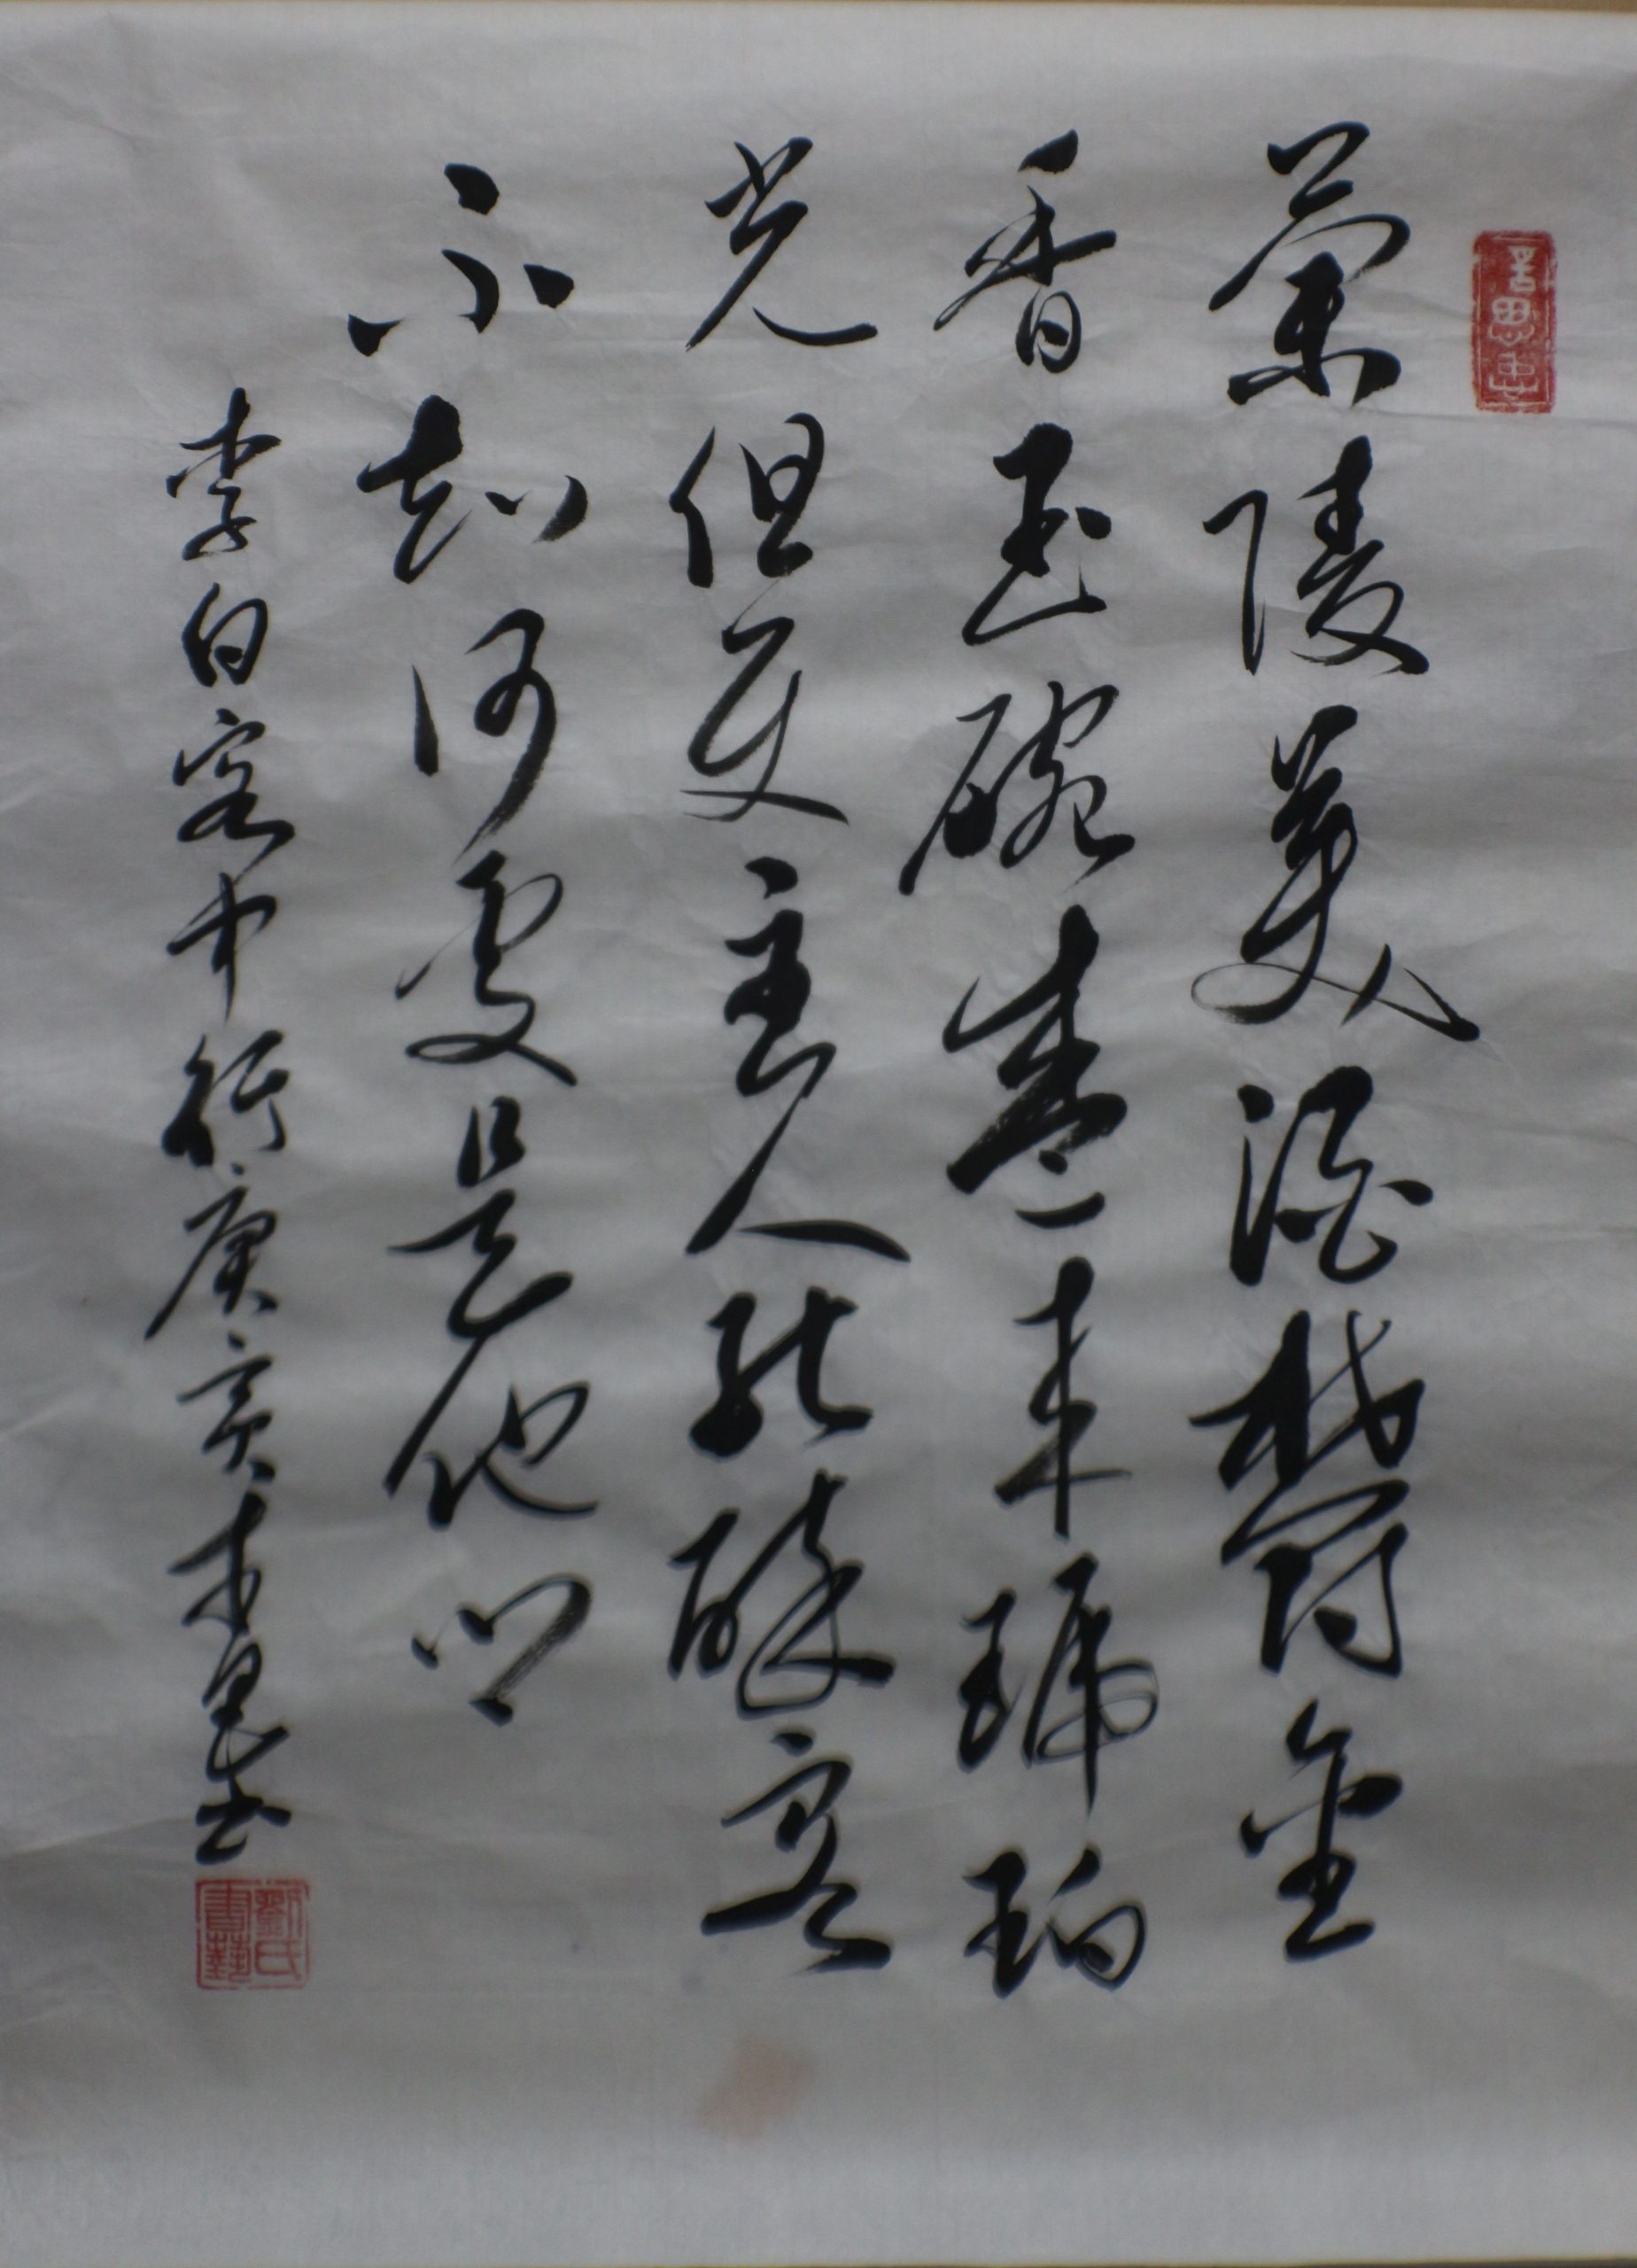 蘭陵美酒鬱金
香玉碗盛来琥珀
光但使主人能醉客
不知何處是他鄉
李白客中行庚寅
劉氏
書藝